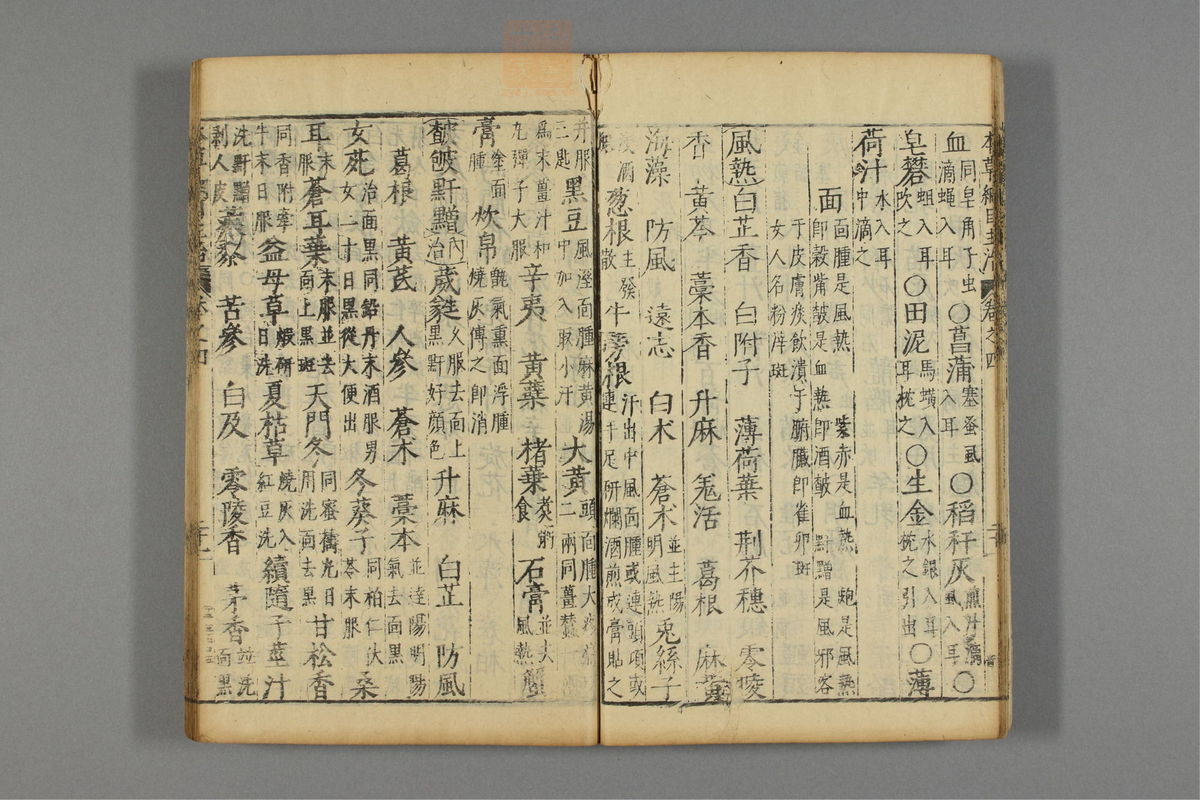 血同皂角子虫滴蝇入耳〇菖蒲塞蚤虱入耳〇稻秆灰煎汁滴虱入耳〇
皂礬蛆入耳吹之〇田泥馬蟥入耳枕之〇生金水銀入耳枕之引出〇薄
荷汁水入耳中滴之
面面腫是風熱 紫赤是血熱 皰是風熱即穀嘴皶是血熱即酒皶 䵟䵳是風邪客
于皮膚痰飲漬于腑臟即雀卵斑女人名粉滓斑
風熱白芷香 白附子 薄荷葉 荆芥穗 零陵
香 黄芩 藁本香 升麻 羗活 葛根 麻黄
海藻 防風 遠志 白术 蒼术並主陽明風熱兎絲子
浸酒服葱根主發散牛蒡根汗出中風面腫或連頭項或連手足研爛酒煎成膏貼之
并服三匙黑豆風溼面腫麻黄湯中加入取小汗大黄頭面腫大疼痛二兩同薑蠶一兩
爲末薑汁和丸彈子大服辛夷 黄葉 楮葉煮粥食石膏並去風熱
膏塗面腫炊帛甑氣熏面浮腫燒灰傅之即消
皶皰䵟䵳内治葳蕤久服去面上黑䵟好顔色升麻 白芷 防風
葛根 黄芪 人參 蒼术 藁本並達陽明陽氣去面黑
女菀治面黑同鉛丹末酒服男女二十日黑從大便出冬葵子同柏仁茯苓末服桑
耳末服蒼耳葉末服並去面上黑斑天門冬同蜜擣丸日用洗面去黑甘松香
同香附牽牛末日服益母草煅研日洗夏枯草燒灰入紅豆洗續隨子莖汁
洗䵟䵳剥人皮蒺藜 苦參 白及 零陵香 茅香並洗面黑